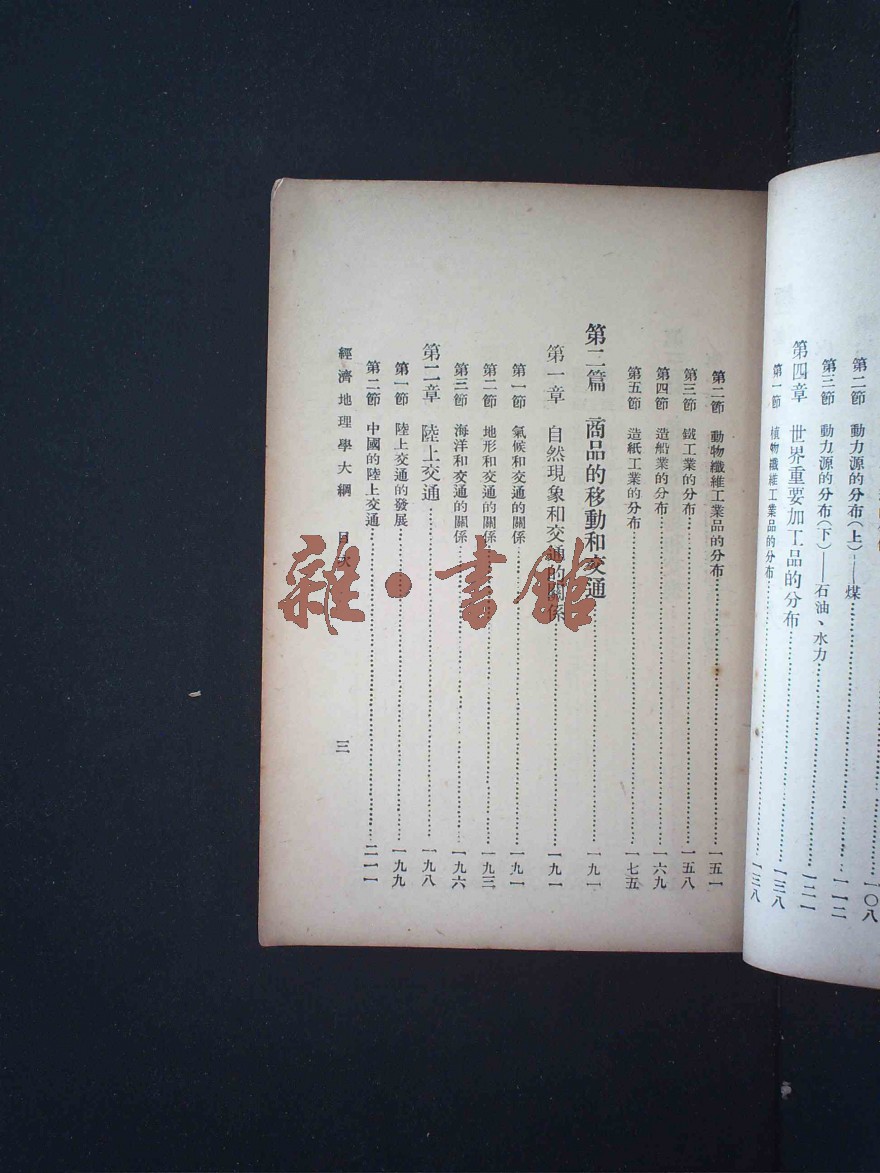 第二節　動力源的分布(上)——煤……一〇八
第三節　動力源的分布(下)——石油、水力……一一二
第四章　世界重要加工品的分布……一三八
第一節　植物纖維工業品的分布……一三八
第二節　動物纖維工業品的分布……一五一
第三節　鐵工業的分布……一五八
第四節　造船業的分布……一六九
第五節　造紙工業的分布……一七五
第二篇　商品的移動和交通……一九一
第一章　自然現象和交通的關係……一九一
第一節　氣候和交通的關係……一九一
第二節　地形和交通的關係……一九三
第三節　海洋和交通的關係……一九六
第二章　陸上交通……一九八
第一節　陸上交通的發展……一九九
第二節　中國的陸上交通……二一一
經濟地理學大綱　目次　三
雜·書館